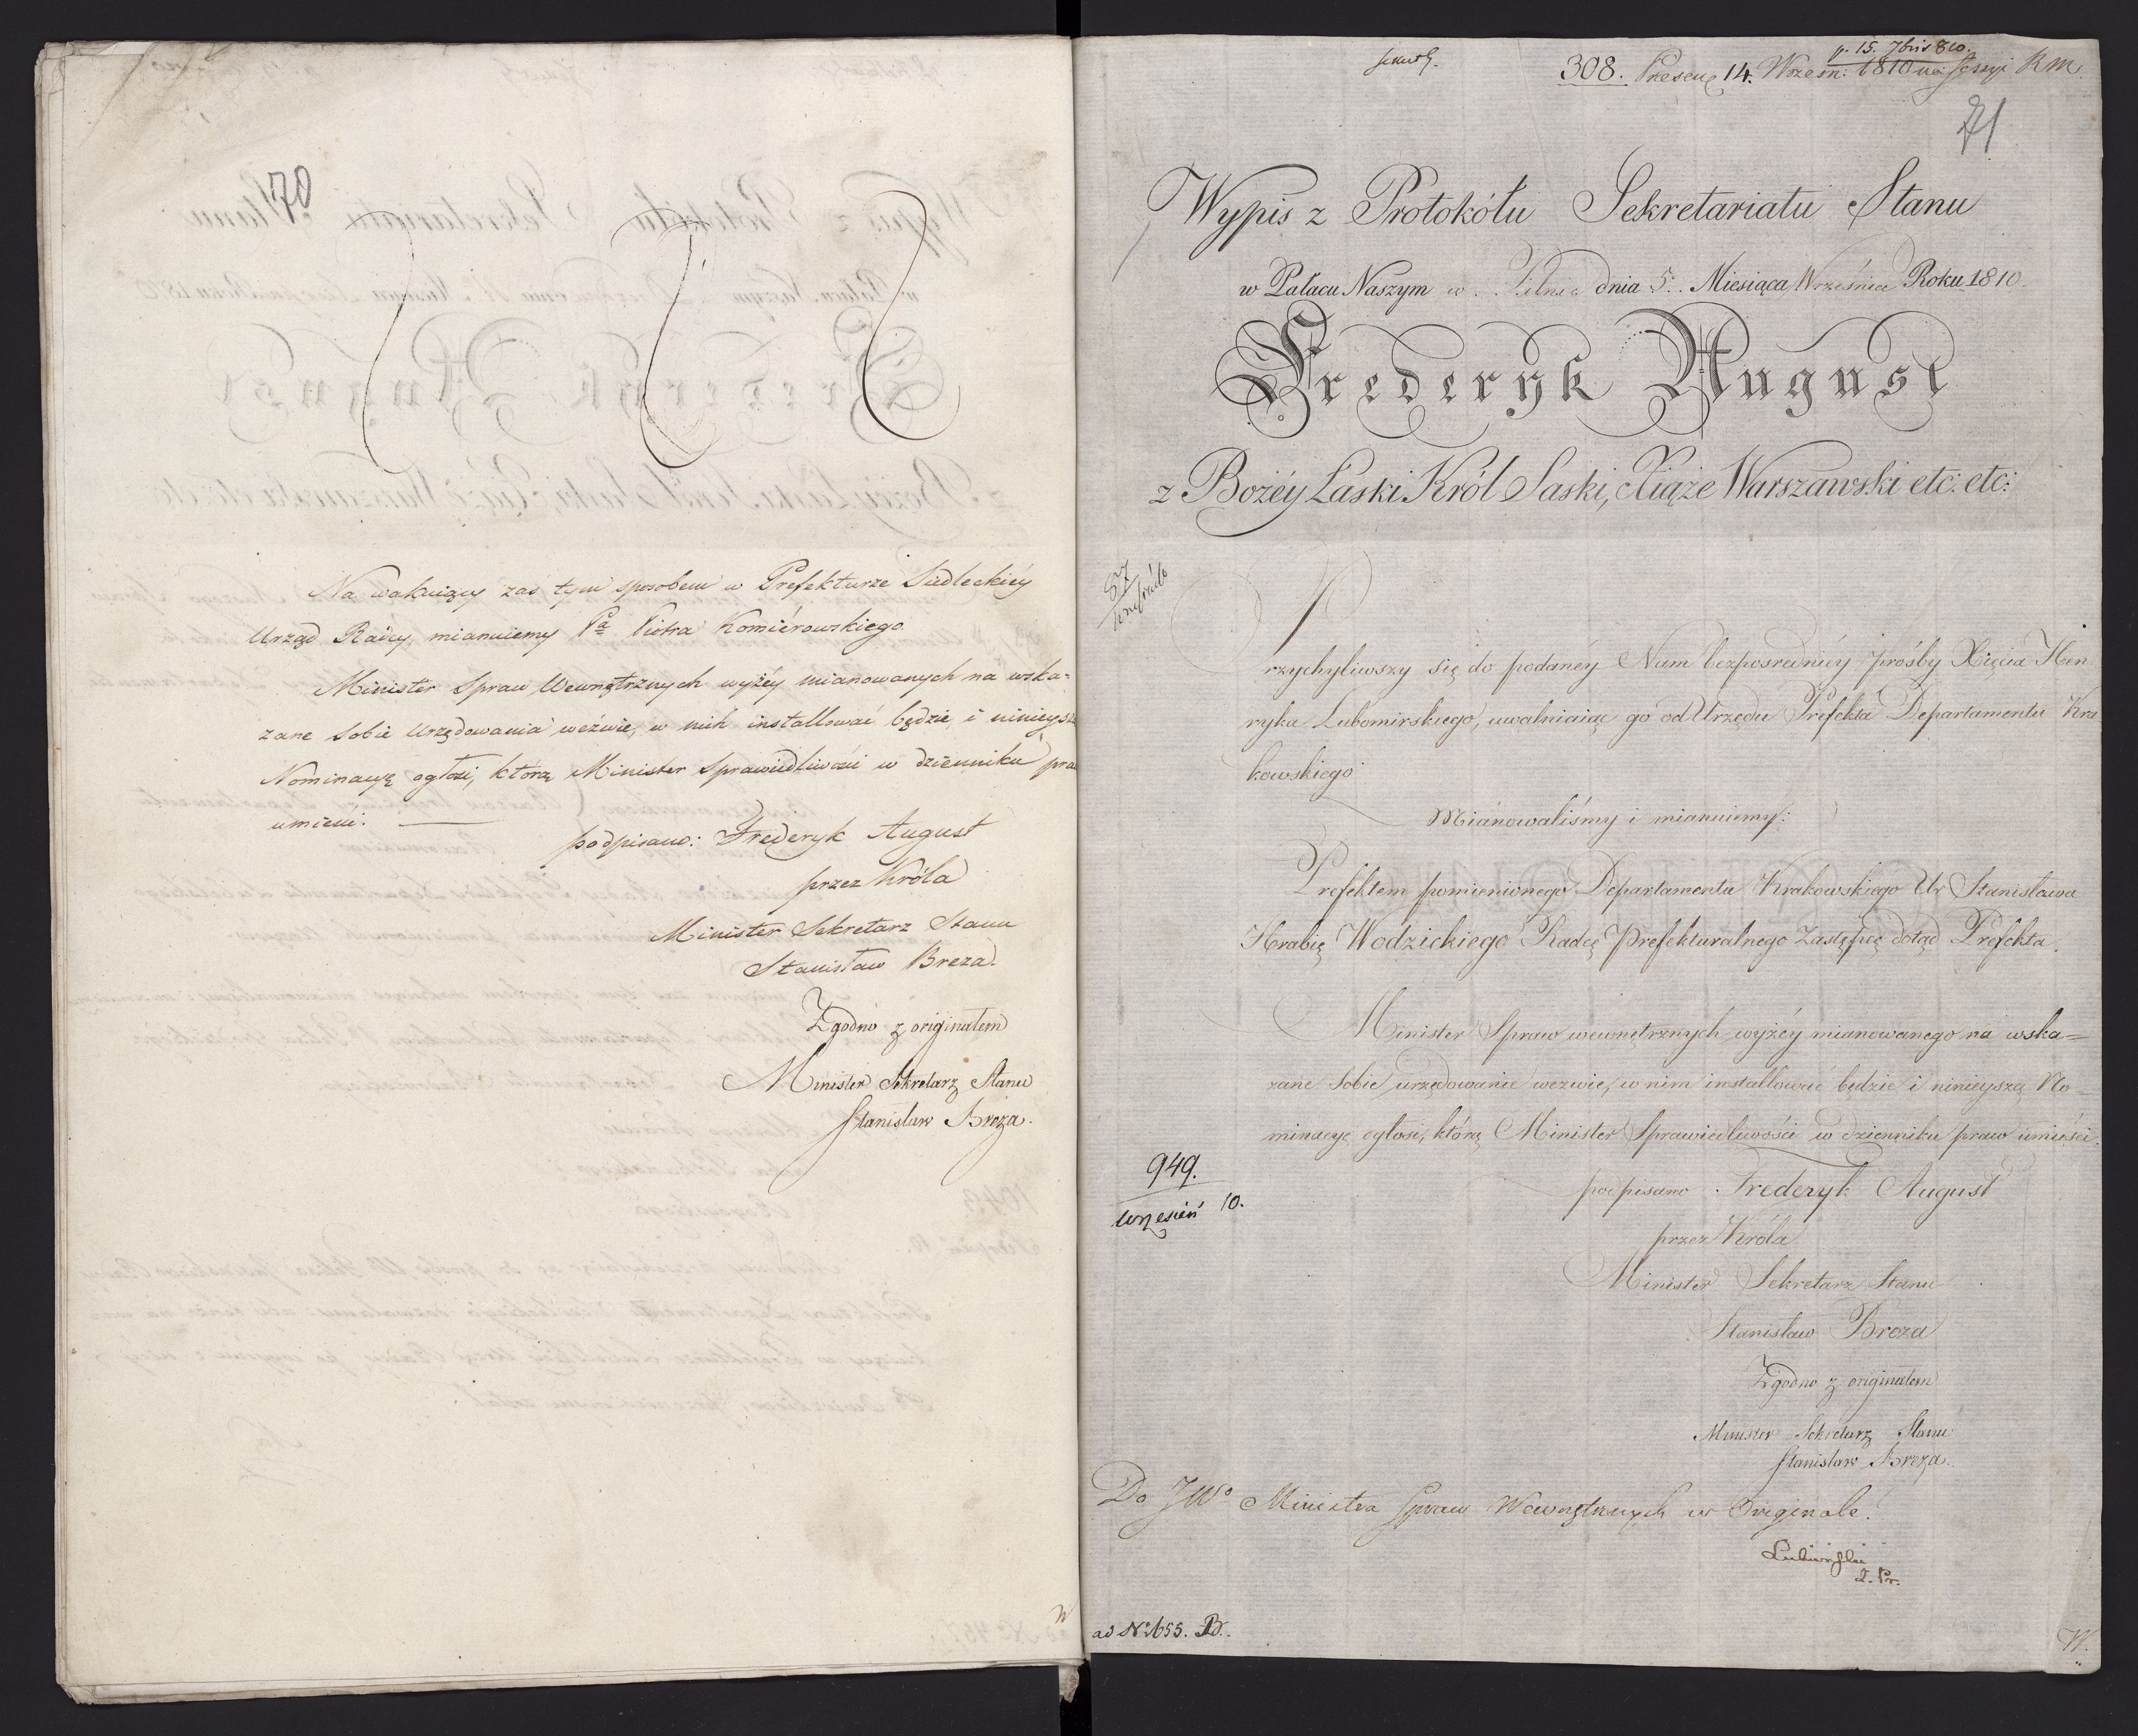 70
Na wakuiący zas tym sposobem w Prefekturze Siedleckiéy
Urząd Raicy, mianuiemy Pa Piotra Komiérowskiego.
Minister Spraw Wewnętrznych wyżéy mianowanych na wska-
zane sobie Urzędowania wezwie, w nich installować będzie, i ninieysz
Nominacyę ogłosi, którą Minister Sprawiedliwości w dzienniku pra
umieści.
podpisano: Frederyk August
przez Króla
Minister Sekretarz Stanu
Stanisław Breza.
Zgodno z originałem
Minister Sekretarz Stanu
Stanisław Breza.
308. Praesent 14. Wrześn: 1810 na Sessyi RM.
p. 15. 7bris 810.
71
Wypis z Protokółu Sekretariatu Stanu
w Pałacu Naszym w Pilnic dnia 5. Miesiąca Września Roku 1810.
Frederyk August
z Bożéy Łaski Król Saski, Xiąże Warszawski etc: etc:
57
Przychyliwszy się do podanéy Nam bezpośredniéy prośby Xięcia Hen
ryka Lubomirskiego, uwalniaiąc go od Urzędu Prefekta Departamentu Kra
kowskiego
Mianowaliśmy i mianuiemy:
Prefektem pomienionego Departamentu Krakowskiego Ur Stanisława
Hrabię Wodzickiego Radcę Prefekturalnego Zastępcę dotąd Prefekta.
Minister Spraw wewnętrznych wyżéy mianowanego na wska=
zane sobie urzędowanie wezwie, w nim installować będzie i ninieyszą No=
minacyę ogłosi, którą Minister Sprawiedliwości w dzienniku praw umieści.
949.
wrzesień 10.
podpisano Frederyk August
przez Króla
Minister Sekretarz Stanu
Stanisław Breza
Zgodno z originałem
Minister Sekretarz Stanu
Stanisław Breza.
Do JWo Ministra Spraw Wewnętrznych w Originale.
Lubieński
ad No 1655. D.
W.